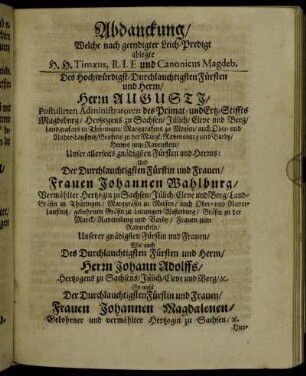 Abdanckung/
Welche nach geendigter Leich-Predigt
ablegte
H. H. Timæus, R. I. F. und Canonicus Magdeb.
Des Hochwürdigst-Durchlauchtigsten Fürsten
und Herrn/
Herrn AUGUSTI/
Postulirten Administratoren des Primat- und Ertz-Stiffts
Magdeburg/ Hertzogens zu Sachsen/ Jülich/ Cleve und Berg/
Landgrafens in Thüringen/ Marggrafens zu Meissen/ auch Ober- und
Nieder-Laußnitz/ Grafens zu der Marck/ Ravensburg und Barby/
Herrns zum Ravenstein/
Unser allerseits gnädigsten Fürsten und Herrns:
Und
Der Durchlauchtigsten Fürstin und Frauen/
Frauen Johannen Wahlburg/
Vermählter Hertzogin zu Sachsen/ Jülich/ Cleve und Berg/ Land-
Gräfin in Thüringen/ Marggräfin zu Meissen/ auch Ober- und Nieder-
Laußnitz/ gebohrnen Gräfin zu Leiningen-Westerburg/ Gräfin zu der
Marck/ Ravensburg und Barby/ Frauen zum
Ravenstein/
Unserer gnädigsten Fürstin und Frauen/
Wie auch
Des Durchlauchtigsten Fürsten und Herrn/
Herrn Johann Adolffs/
Hertzogens zu Sachsen/ Jülich/ Cleve und Berg/ ꝛc.
So wohl
Der Durchlauchtigsten Fürstin und Frauen/
Frauen Johannen Magdalenen/
Gebohrner und vermählter Hertzogin zu Sachsen/ ꝛc.